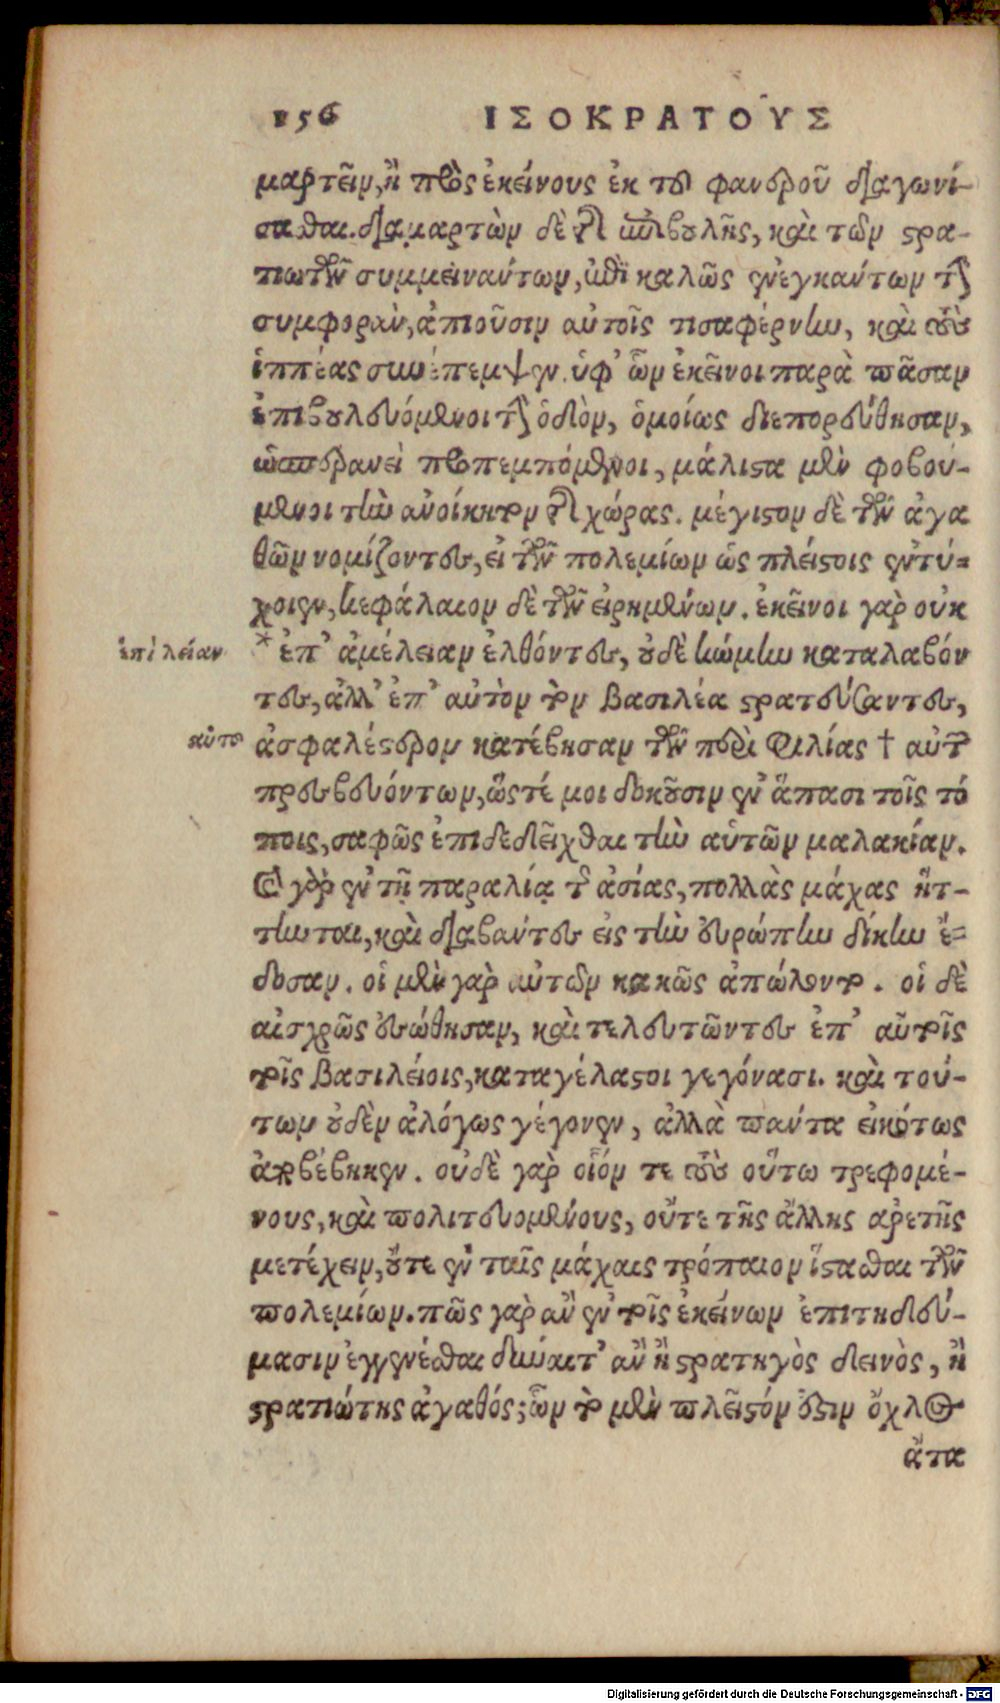 156 ΙΣΟΚΡΑΤΟΥΣ
μαρτεῖν, ἢ πρὸς ἐκείνους ἐκ τοῦ φανεροῦ διαγωνί-
σαθαι. διαμαρτὼν δὲ τῆς ἐπιβουλῆς, καὶ τῶν στρα-
τιωτῶν συμμεινάντων, καὶ καλῶς ἐνεγκάντων τὴν
συμφορὰν, ἀπιοῦσιν αὐτοῖς τισαφέρνην, καὶ τοὺς
ἱππέας συνέπεμψεν. ὑφ' ὧν ἐκεῖνοι παρὰ πᾶσαν
ἐπιβουλευόμενοι τὴν ὁδὸν, ὁμοίως διεπορεύθησαν,
ὡσπερανεὶ προπεμπόμενοι, μάλιστα μὲν φοβού-
μενοι τὴν ἀνοίκητον τῆς χώρας. μέγιστον δὲ τῶν ἀγα
θῶν νομίζοντες, εἰ τῶν πολεμίων ὡς πλείστοις ἐντύ-
χοιεν, κεφάλαιον δὲ τῶν εἰρημένων. ἐκεῖνοι γὰρ οὐκ
ἐπὶ λείαν * ἐπ' ἀμέλειαν ἐλθόντες, οὐδὲ κώμην καταλαβόν
τες, ἀλλ' ἐπ' αὐτὸν τὸν βασιλέα στρατεύσαντες,
αὐτο ἀσφαλέστερον κατέβησαν τῶν περὶ φιλίας † αὐτῷ
πρεσβευόντων, ὥστέ μοι δοκοῦσιν ἐν ἅπασι τοῖς τό
ποις, σαφῶς ἐπιδεδεῖχθαι τὴν αὑτῶν μαλακίαν.
καὶ γὰρ ἐν τῇ παραλίᾳ τῆς ἀσίας, πολλὰς μάχας ἥτ-
τηνται, καὶ διαβάντες εἰς τὴν εὐρώπην δίκην ἔ-
δοσαν. οἱ μὲν γὰρ αὐτῶν κακῶς ἀπώλοντο. οἱ δὲ
αἰσχρῶς ἐσώθησαν, καὶ τελευτῶντες ἐπ' αὐτοῖς
τοῖς βασιλείοις, καταγέλαστοι γεγόνασι. καὶ τού-
των οὐδὲν ἀλόγως γέγονεν, ἀλλὰ πάντα εἰκότως
ἀποβέβηκεν. οὐδὲ γὰρ οἷόν τε τοὺς οὕτω τρεφομέ-
νους, καὶ πολιτευομένους, οὔτε τῆς ἄλλης ἀρετῆς
μετέχειν, οὔτε ἐν ταῖς μάχαις τρόπαιον ἵσταθαι τῶν
πολεμίων. πῶς γὰρ ἂν ἐν τοῖς ἐκείνων ἐπιτηδεύ-
μασιν ἐγγενέθαι δύναιτ' ἂν ἢ στρατηγὸς δεινὸς, ἢ
στρατιώτης ἀγαθός; ὧν τὸ μὲν πλεῖστόν ἐστιν ὄχλος
ἄτα
Digitalisierung gefördert durch die Deutsche Forschungsgemeinschaft - DFG